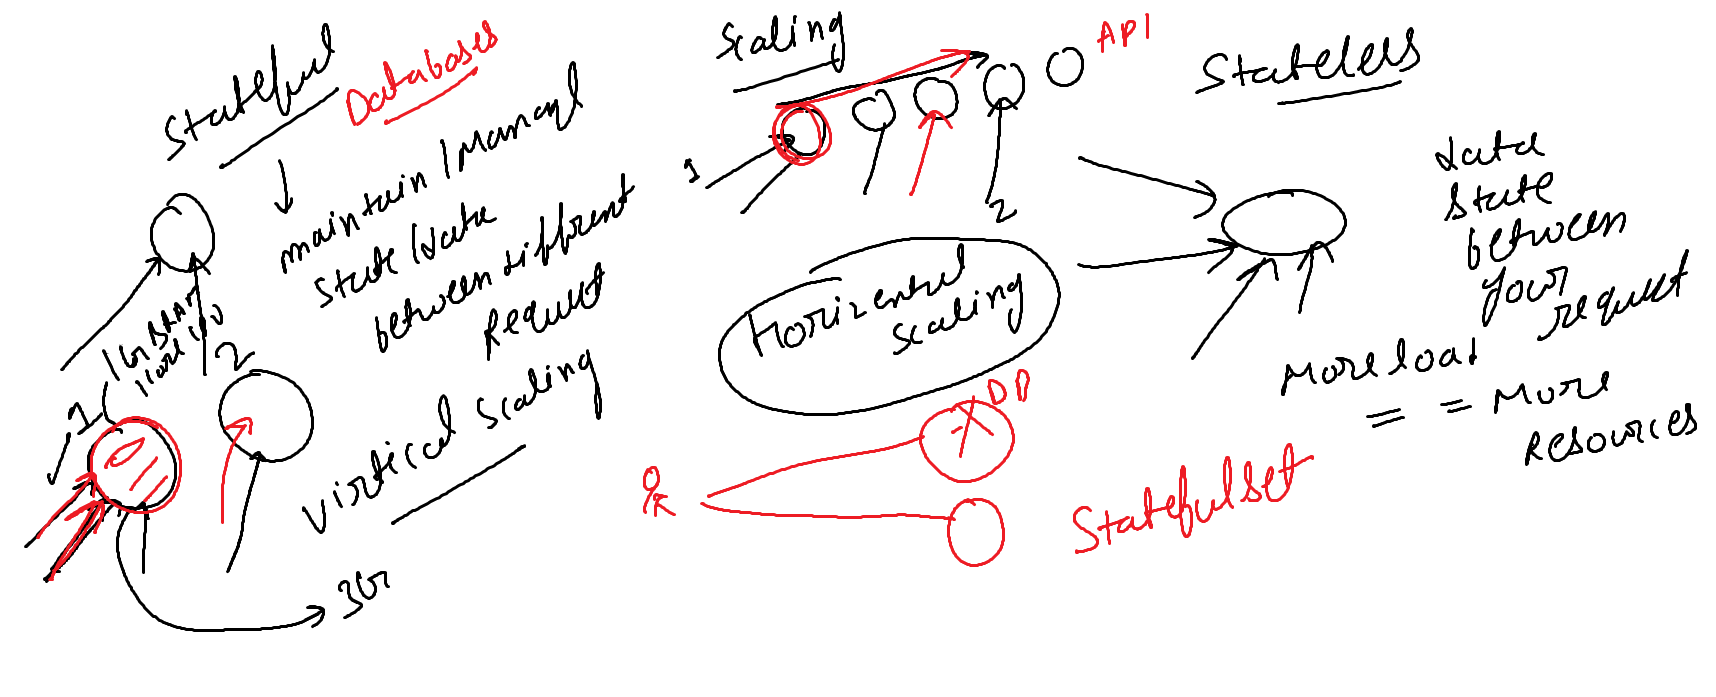 Stateful
Databases
maintain / Manage
state / data
between different
Request
1 GB RAM
1 core CPU
1
2
Virtical Scaling
3Gr
Scaling
API
1
2
Horizental
scaling
DB
Statefulset
Stateless
data
state
between
your
request
More load
= = More
Resources